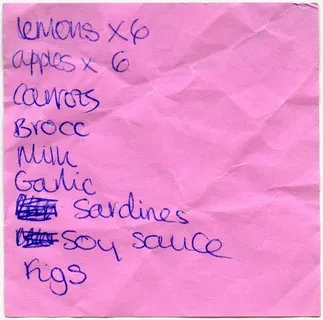 lemons x 6
apples x 6
carrots
Brocc
Milk
Garlic
Sardines
soy sauce
Figs